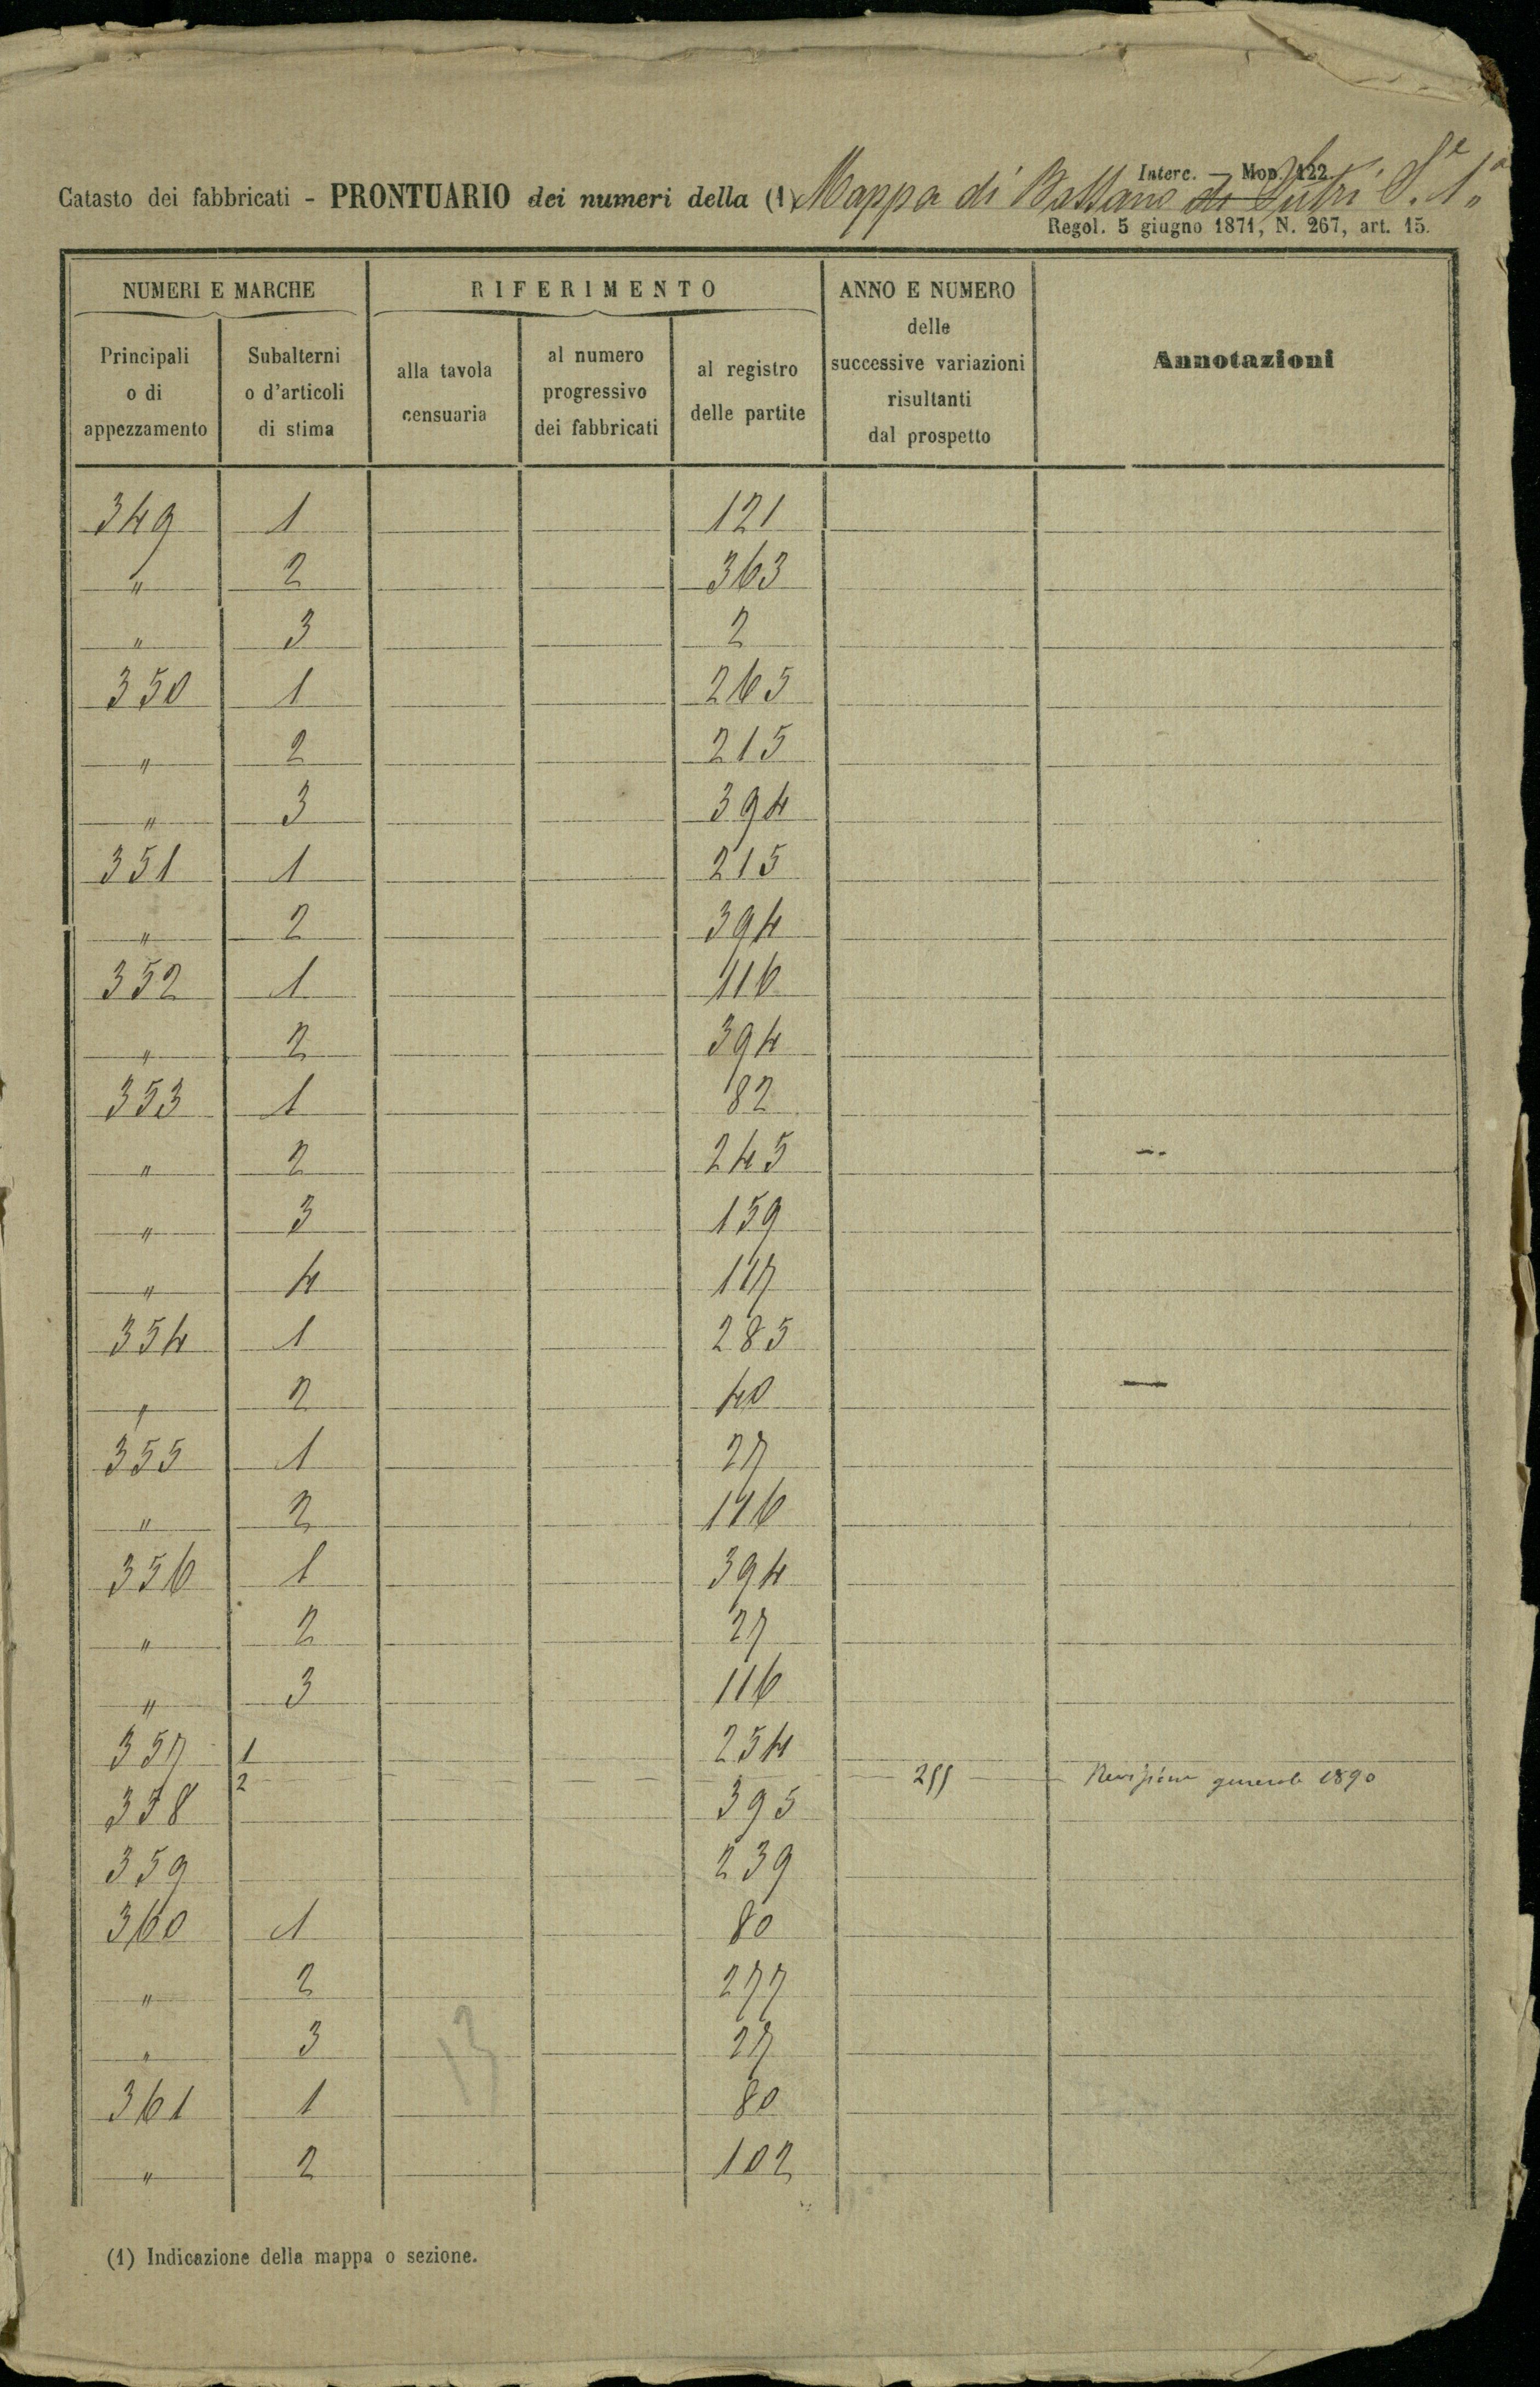 Interc. — Mod. 122.
Catasto dei fabbricati - PRONTUARIO dei numeri della (1) Mappa di Bassano di Sutri S.e 1a
Regol. 5 giugno 1871, N. 267, art. 15.
NUMERI E MARCHE RIFERIMENTO ANNO E NUMERO delle successive variazioni risultanti dal prospetto Annotazioni
Principali o di appezzamento Subalterni o d'articoli di stima alla tavola censuaria al numero progressivo dei fabbricati al registro delle partite
349 1 121
" 2 363
" 3 2
350 1 265
" 2 215
" 3 394
351 1 215
" 2 394
352 1 116
" 2 394
353 1 82
" 2 245
" 3 159
" 4 117
354 1 285
" 2 40
355 1 27
" 2 116
356 1 394
" 2 27
" 3 116
357 1 254
2 — — — — — 255 — Revisione generale 1890
358 395
359 239
360 1 80
" 2 277
" 3 27
13
361 1 80
" 2 102
(1) Indicazione della mappa o sezione.